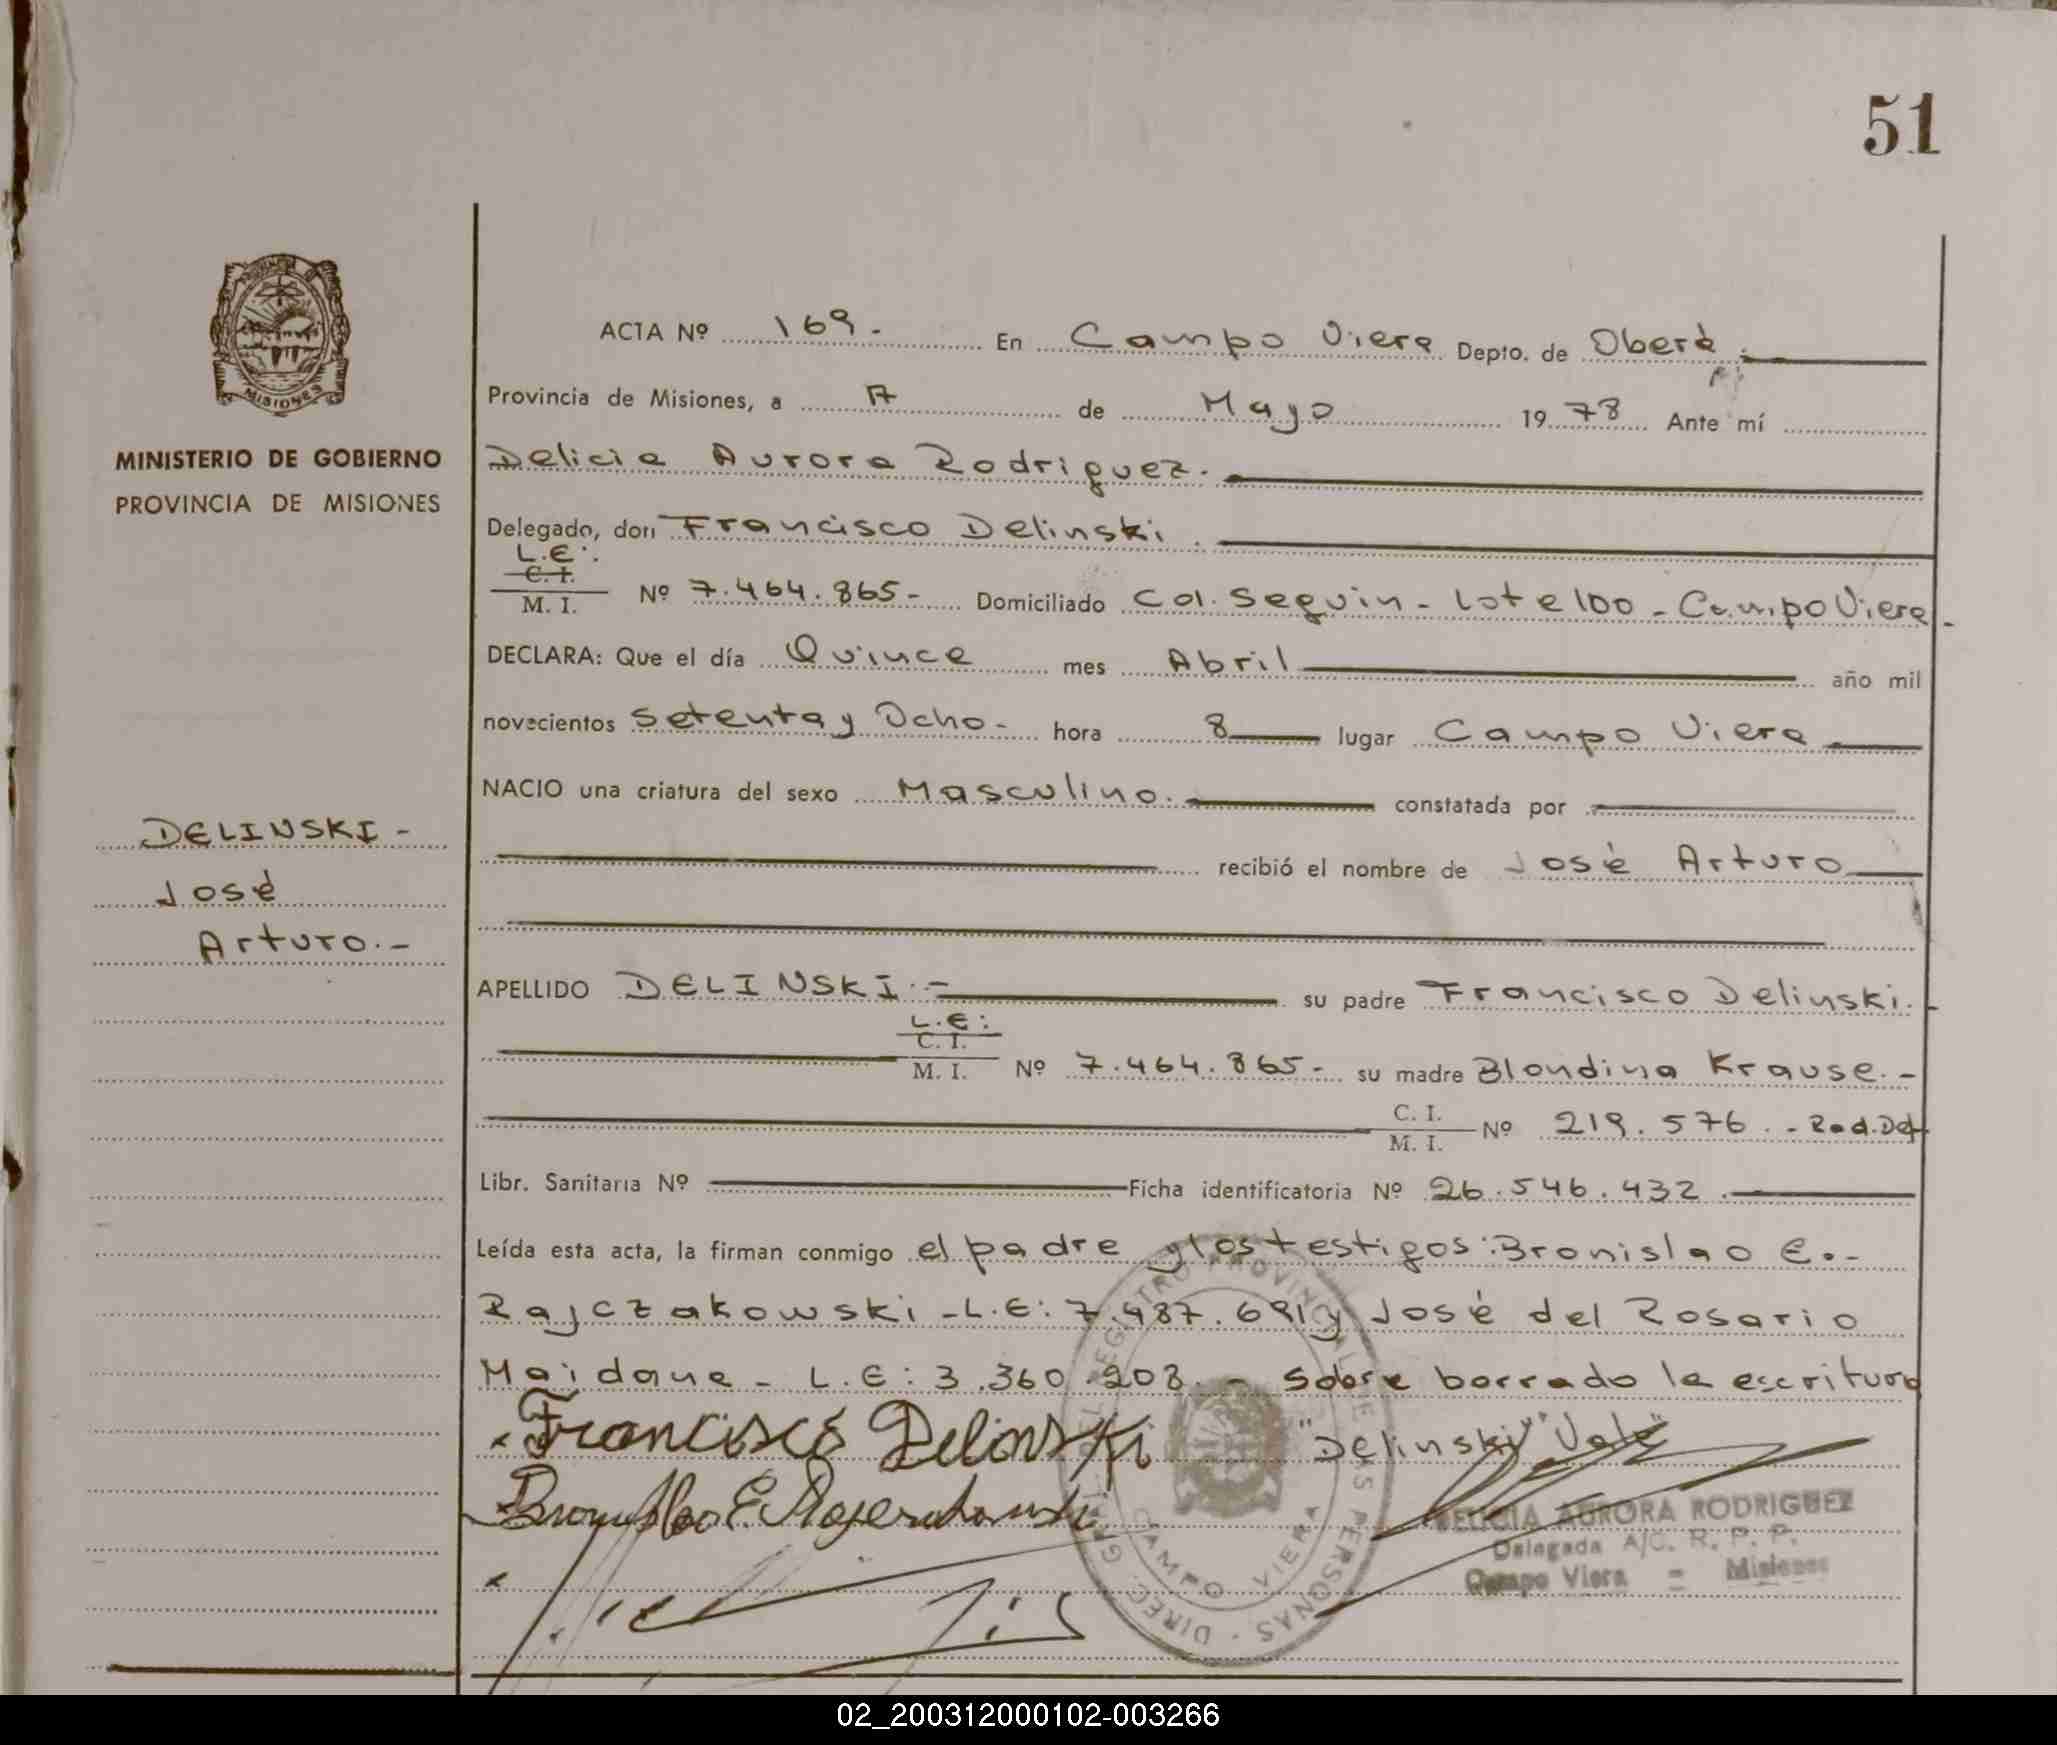 51
ACTA Nº 169. En Campo Viera Depto. de Oberà.
Provincia de Misiones, a de Mayo 1978 Ante mí
Delicia Aurora Rodriguez.
Delegado, don Francisco Delinski.
L.E:
C. I.
M. I. Nº 7.464.865- Domiciliado Col. Seguin - Lote 100 - Campo Viera -
DECLARA: Que el día Quince mes Abril año mil
novecientos Setenta y Ocho- hora 8 lugar Campo Viera
NACIO una criatura del sexo Masculino. constatada por
recibió el nombre de Josè Arturo
APELLIDO DELINSKI.- su padre Francisco Delinski.-
L.E:
C. I.
M. I. Nº 7.464.865- su madre Blondina Krause.-
C. I.
M. I. Nº 219.576.-Rad.Def
Libr. Sanitaria Nº Ficha identificatoria Nº 26.546.432.
Leída esta acta, la firman conmigo el padre y los testigos: Bronislao E.-
Rajczakowski -L.E: 7.487.691 y José del Rosario
Maidana - L.E: 3.360.208.- Sobre borrado la escritura
"Delinski" "Vale"
Francisco Delinski
DELICIA AURORA RODRIGUEZ
Delegada A/C. R. P. P.
Campo Viera - Misiones
DIREC. GRAL. DEL REGISTRO PROVINCIAL DE LAS PERSONAS
CAMPO VIERA
MISIONES
MINISTERIO DE GOBIERNO
PROVINCIA DE MISIONES
DELINSKI-
José
Arturo.-
02_200312000102-003266